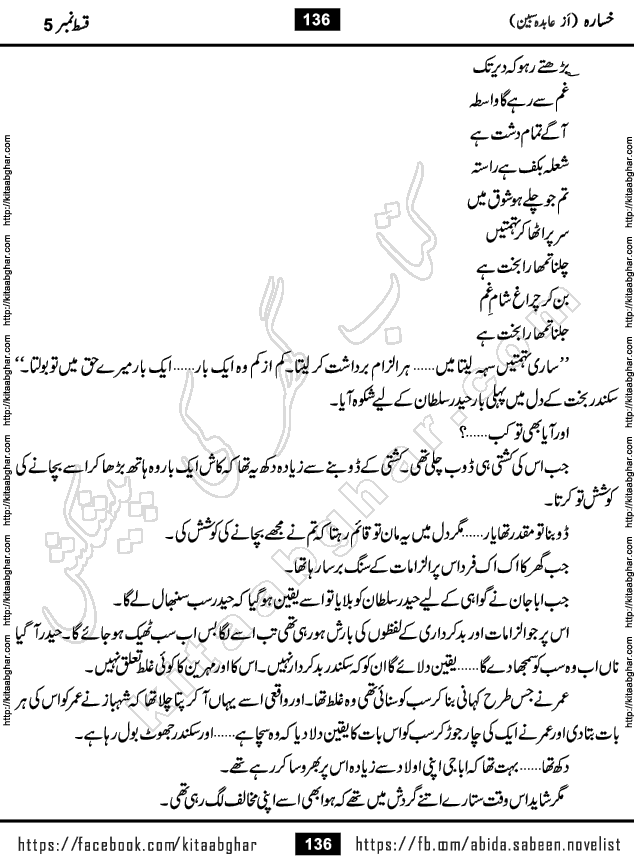 خسارہ (از عابدہ سبین)
136
قسط نمبر 5
بڑھتے رہو کہ دیر تک
غم سے رہے گا واسطہ
آگے تمام دشت ہے
شعلہ بکف ہے راستہ
تم جو چلے ہو شوق میں
سر پر اٹھا کر تہمتیں
چلنا تمھارا بخت ہے
بن کر چراغ شامِ غم
جلنا تمھارا بخت ہے
’’ساری تہمتیں سہہ لیتا میں...... ہر الزام برداشت کر لیتا۔ کم از کم وہ ایک بار...... ایک بار میرے حق میں تو بولتا۔‘‘
سکندر بخت کے دل میں پہلی بار حیدر سلطان کے لیے شکوہ آیا۔
اور آیا بھی تو کب......؟
جب اس کی کشتی ہی ڈوب چلی تھی۔ کشتی کے ڈوبنے سے زیادہ دکھ یہ تھا کہ کاش ایک بار وہ ہاتھ بڑھا کر اسے بچانے کی
کوشش تو کرتا۔
ڈوبنا تو مقدر تھا یار...... مگر دل میں یہ مان تو قائم رہتا کہ تم نے مجھے بچانے کی کوشش کی۔
جب گھر کا اک اک فرد اس پر الزامات کے سنگ برسا رہا تھا۔
جب ابا جان نے گواہی کے لیے حیدر سلطان کو بلایا تو اسے یقین ہو گیا کہ حیدر سب سنبھال لے گا۔
اس پر جو الزامات اور بدکرداری کے لفظوں کی بارش ہو رہی تھی تب اسے لگا بس اب سب ٹھیک ہو جائے گا۔ حیدر آ گیا
ناں اب وہ سب کو سمجھا دے گا...... یقین دلائے گا ان کو کہ سکندر بدکردار نہیں۔ اس کا اور مہرین کا کوئی غلط تعلق نہیں۔
عمر نے جس طرح کہانی بنا کر سب کو سنائی تھی وہ غلط تھا۔ اور واقعی اسے یہاں آ کر پتا چلا تھا کہ شہباز نے عمر کو اس کی ہر
بات بتا دی اور عمر نے ایک کی چار جوڑ کر سب کو اس بات کا یقین دلا دیا کہ وہ سچا ہے...... اور سکندر جھوٹ بول رہا ہے۔
دکھ تھا...... بہت تھا کہ ابا جی اپنی اولاد سے زیادہ اس پر بھروسا کر رہے تھے۔
مگر شاید اس وقت ستارے اتنے گردش میں تھے کہ ہوا بھی اسے اپنی مخالف لگ رہی تھی۔
http://kitaabghar.com http://kitaabghar.com http://kitaabghar.com http://kitaabghar.com http://kitaabghar.com http://kitaabghar.com
http://kitaabghar.com http://kitaabghar.com http://kitaabghar.com http://kitaabghar.com http://kitaabghar.com http://kitaabghar.com
کتاب گھر کی پیشکش
kitaabghar.com
https://facebook.com/kitaabghar
136
https://fb.com/abida.sabeen.novelist